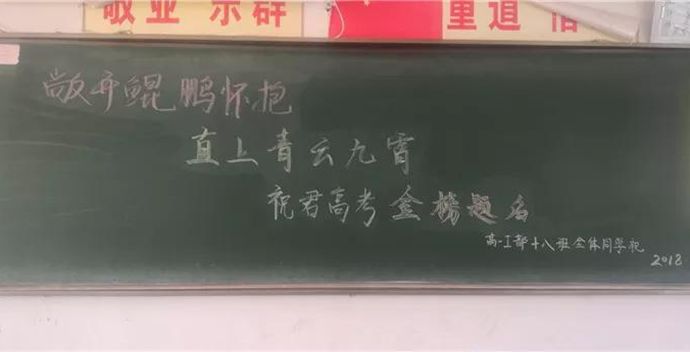 敬业 乐群
重道 信
敞开鲲鹏怀抱
直上青云九霄
祝君高考金榜题名
高一I部十八班全体同学祝
2018